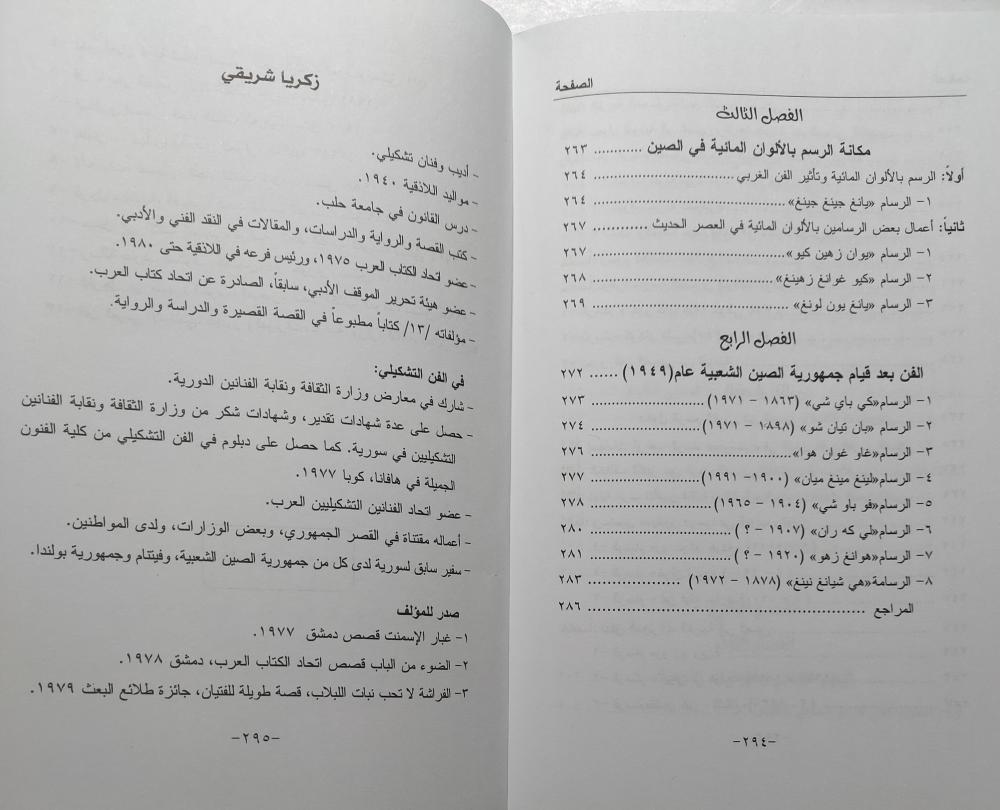 الصفحة
الفصل الثالث
مكانة الرسم بالألوان المائية في الصين ............ ٢٦٣
أولاً: الرسم بالألوان المائية وتأثير الفن الغربي ................................ ٢٦٤
١- الرسام «يانغ جينغ جينغ» ............................................ ٢٦٤
ثانياً: أعمال بعض الرسامين بالألوان المائية في العصر الحديث ............ ٢٦٧
١- الرسام «يوان زهين كيو» ............................................ ٢٦٧
٢- الرسام «كيو غوانغ زهينغ» ............................................ ٢٦٨
٣- الرسام «يانغ يون لونغ» ............................................ ٢٦٩
الفصل الرابع
الفن بعد قيام جمهورية الصين الشعبية عام(١٩٤٩) ...... ٢٧٢
١- الرسام«كي باي شي» (١٨٦٣ – ١٩٧١) ........................ ٢٧٣
٢- الرسام «بان تيان شو» (١٨٩٨ – ١٩٧١) ........................ ٢٧٤
٣- الرسام«غاو غوان هوا» ............................................ ٢٧٦
٤- الرسام«لينغ مينغ ميان» (١٩٠٠- ١٩٩١) ........................ ٢٧٧
٥- الرسام«فو باو شي» (١٩٠٤ – ١٩٦٥) ........................ ٢٧٨
٦- الرسام«لي كه ران» (١٩٠٧ – ؟ ) ........................ ٢٨٠
٧- الرسام«هوانغ زهو» (١٩٢٠ – ؟ ) ........................ ٢٨١
٨- الرسامة«هي شيانغ نينغ» (١٨٧٨ – ١٩٧٢) ................ ٢٨٣
المراجع ............................................ ٢٨٦
-٢٩٤-
زكريا شريقي
- أديب وفنان تشكيلي.
- مواليد اللاذقية ١٩٤٠.
- درس القانون في جامعة حلب.
- كتب القصة والرواية والدراسات، والمقالات في النقد الفني والأدبي.
- عضو اتحاد الكتاب العرب ١٩٧٥، ورئيس فرعه في اللاذقية حتى ١٩٨٠.
- عضو هيئة تحرير الموقف الأدبي، سابقاً، الصادرة عن اتحاد كتاب العرب.
- مؤلفاته /١٣/ كتاباً مطبوعاً في القصة القصيرة والدراسة والرواية.
في الفن التشكيلي:
- شارك في معارض وزارة الثقافة ونقابة الفنانين الدورية.
- حصل على عدة شهادات تقدير، وشهادات شكر من وزارة الثقافة ونقابة الفنانين
التشكيليين في سورية. كما حصل على دبلوم في الفن التشكيلي من كلية الفنون
الجميلة في هافانا، كوبا ١٩٧٧.
- عضو اتحاد الفنانين التشكيليين العرب.
- أعماله مقتناة في القصر الجمهوري، وبعض الوزارات، ولدى المواطنين.
- سفير سابق لسورية لدى كل من جمهورية الصين الشعبية، وفيتنام وجمهورية بولندا.
صدر للمؤلف
١- غبار الإسمنت قصص دمشق ١٩٧٧.
٢- الضوء من الباب قصص اتحاد الكتاب العرب، دمشق ١٩٧٨.
٣- الفراشة لا تحب نبات اللبلاب، قصة طويلة للفتيان، جائزة طلائع البعث ١٩٧٩.
-٢٩٥-